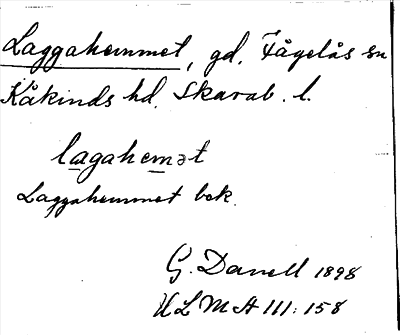 Laggahemmet, gd. Fågelås sn
Kåkinds hd. Skarab. l.
lagahemət
Laggahemmet bok.
G. Danell 1898
ULMA 111:158